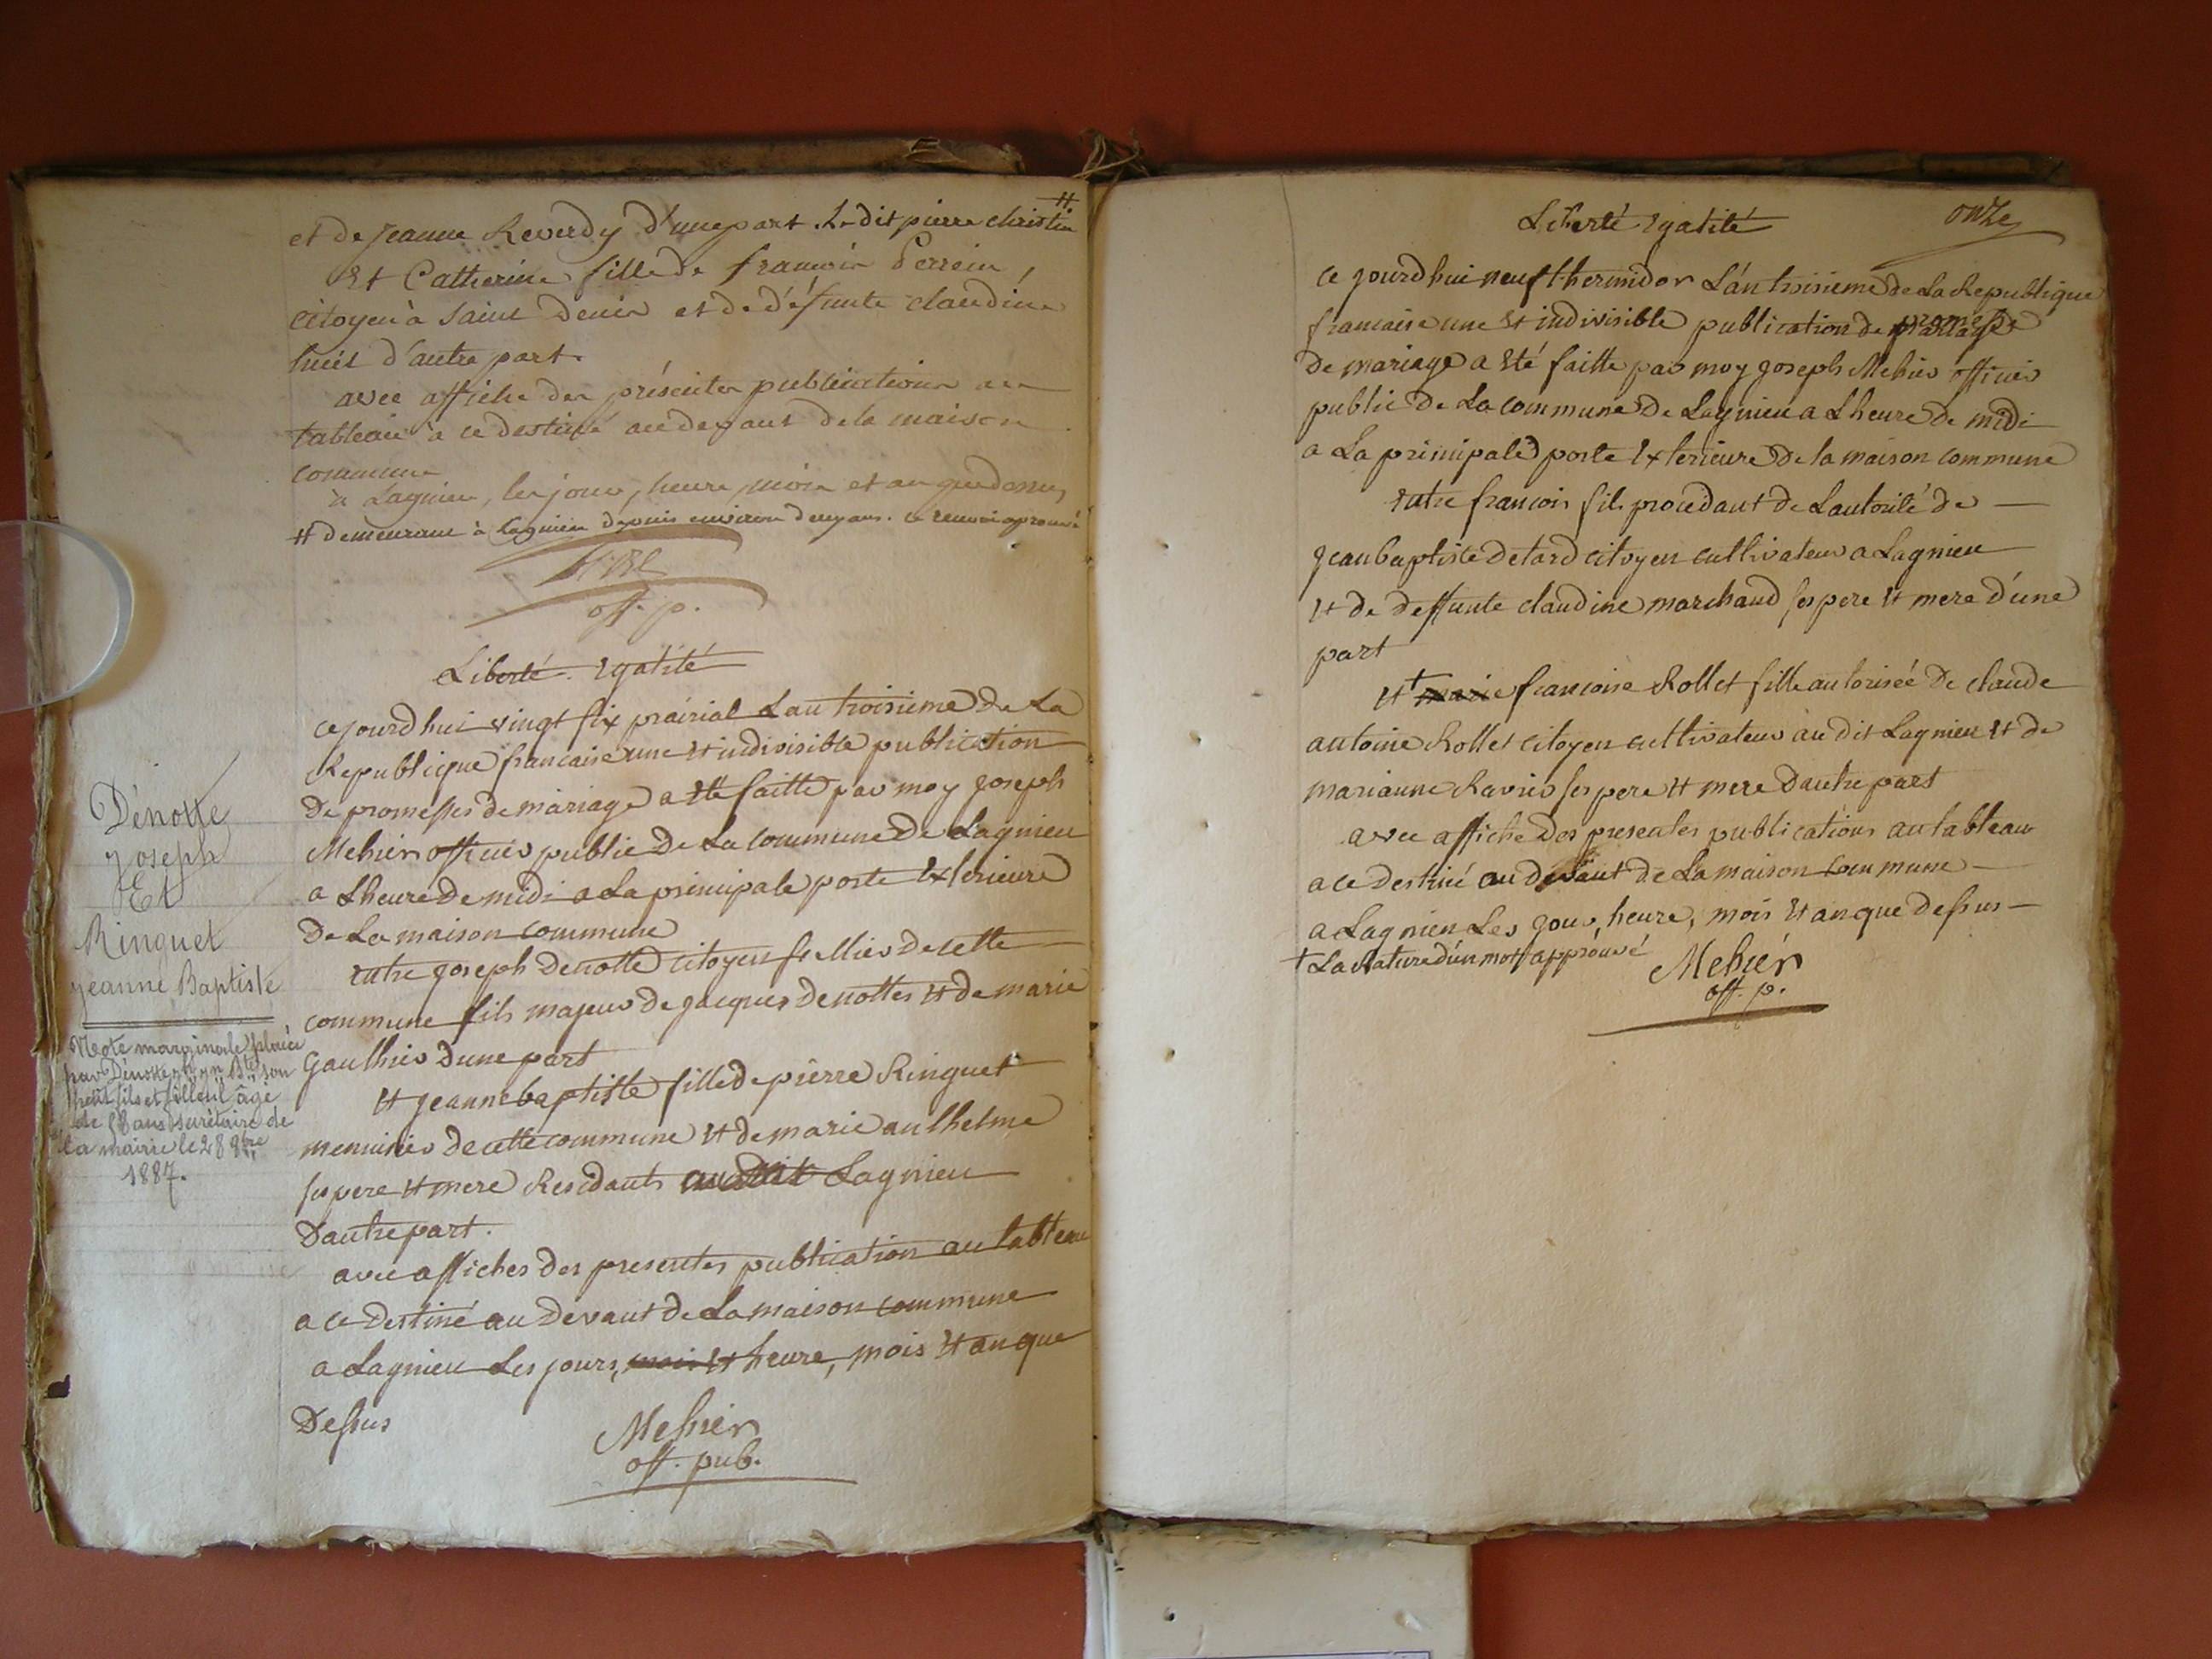 et de jeanne Reverdy d'une part. Le dit pierre christin #
Et Catherine fille de francois Perrein,
citoyen à saint denis et de défunte claudine
huët d'autre part.
avec affiche des présentes publications au
tableau à ce destiné au devant de la maison
commune
à Lagnieu, les jour, heure, mois et an que dessus,
# demeurant à Lagnieu depuis environ deux ans. ce renvoi aprouvé
off. p.
Liberté. Egalité
cejourdhui vingt six prairial Lan troisieme de La
Republique francaise une et indivisible publication
de promesses de mariage a eté faitte par moy joseph
Mehier officier public de La commune de Lagnieu
a Lheure de midi a La principale porte Exterieure
de La maison commune
entre joseph denotte citoyen sellier de cette
commune fils majeur de jacques denottes et de marie
gaulthier dune part
et jeanne baptiste fille de pierre Ringuet
menuisier de cette commune et de marie anthelme
ses pere et mere Residants Lagnieu
Dautre part.
avec affiches des presentes publication au tableau
a ce destiné au devant de La maison commune
a Lagnieu Les jours, mois et heure, mois et an que
Dessus
Mehier
off. pub.
Dénotte
Joseph
Et
Ringuet
Jeanne Baptiste
Note marginale placée
par Dénotte son
petit fils et filleul âgé
de ans secrétaire de
la mairie le 28 8bre
1887.
onze
Liberté Egalité
ce jourdhui neuf thermidor L'an troisieme de La Republique
francaise une et indivisible publication de promesse
de mariage a eté faitte par moy joseph Mehier officier
public de La commune de Lagnieu a Lheure de midi
a La principale porte Exterieure de la maison commune
entre francois fils procédant de Lautorité de
jean baptiste detard citoyen cultivateur a Lagnieu
et de deffunte claudine marchand ses pere et mere d'une
part
et † marie francoise Rollet fille autorisée de claude
antoine Rollet citoyen cultivateur au dit Lagnieu et de
marianne Ravier ses pere et mere dautre part
avec affiche des presentes publications au tableau
a ce destiné au devant de La maison commune
a Lagnieu Les jour, heure, mois et an que dessus
† La rature d'un mot approuvé
Mehier
off. p.